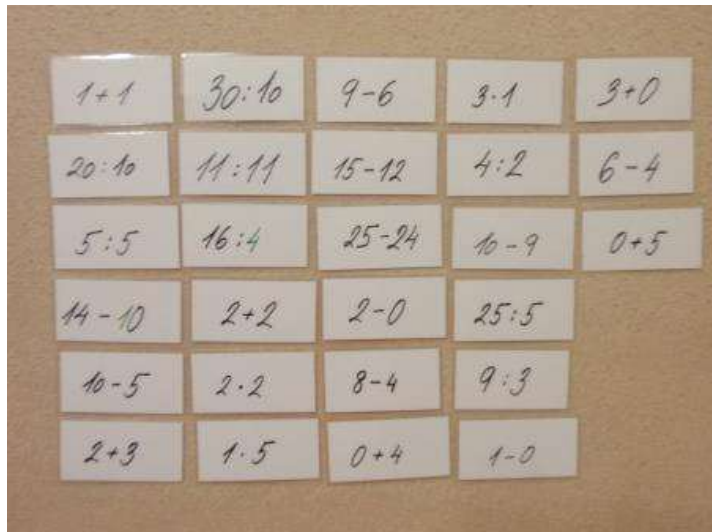 1+1 30:10 9-6 3·1 3+0
20:10 11:11 15-12 4:2 6-4
5:5 16:4 25-24 10-9 0+5
14-10 2+2 2-0 25:5
10-5 2·2 8-4 9:3
2+3 1·5 0+4 1-0